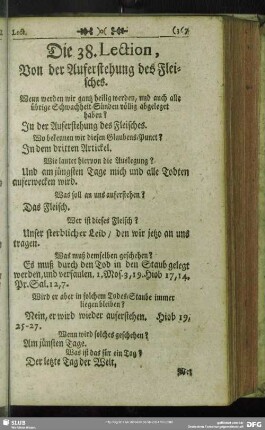 Lect. )o( (163
Die 38. Lection,
Von der Auferstehung des Flei-
sches.
Wenn werden wir gantz heilig werden, und auch alle
übrige Schwachheit-Sünden völlig abgeleget
haben?
In der Auferstehung des Fleisches.
Wo bekennen wir diesen Glaubens-Punct?
In dem dritten Artickel.
Wie lautet hiervon die Auslegung?
Und am jüngsten Tage mich und alle Todten
auferwecken wird.
Was soll an uns auferstehen?
Das Fleisch.
Wer ist dieses Fleisch?
Unser sterblicher Leib / den wir jetzo an uns
tragen.
Was muß demselben geschehen?
Es muß durch den Tod in den Staub gelegt
werden, und verfaulen. 1. Mos. 3, 19. Hiob 17, 14.
Pr. Sal. 12, 7.
Wird er aber in solchem Todes-Staube immer
liegen bleiben?
Nein, er wird wieder auferstehen. Hiob 19,
25-27.
Wenn wird solches geschehen?
Am jünsten Tage.
Was ist das für ein Tag?
Der letzte Tag der Welt,
SLUB
DFG